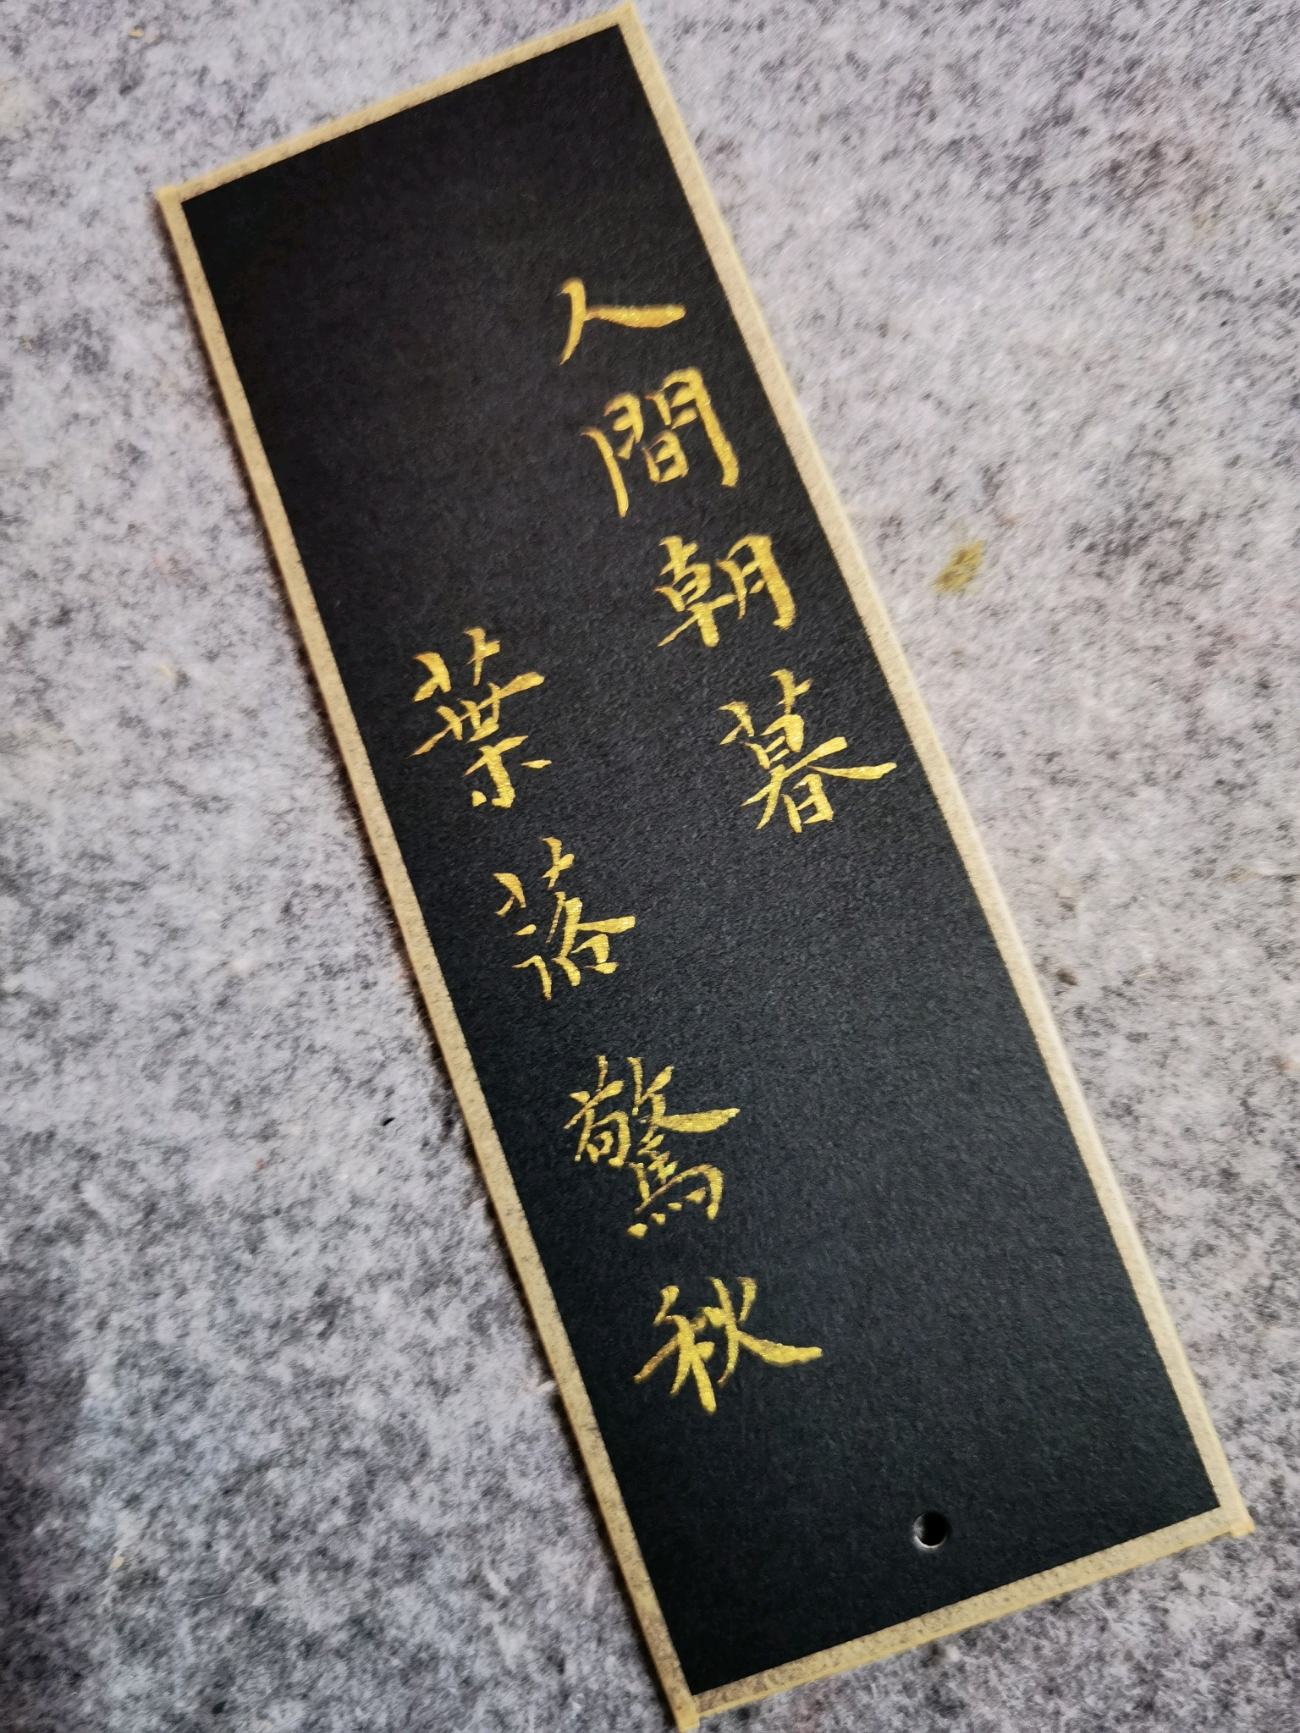 人間朝暮
葉落驚秋